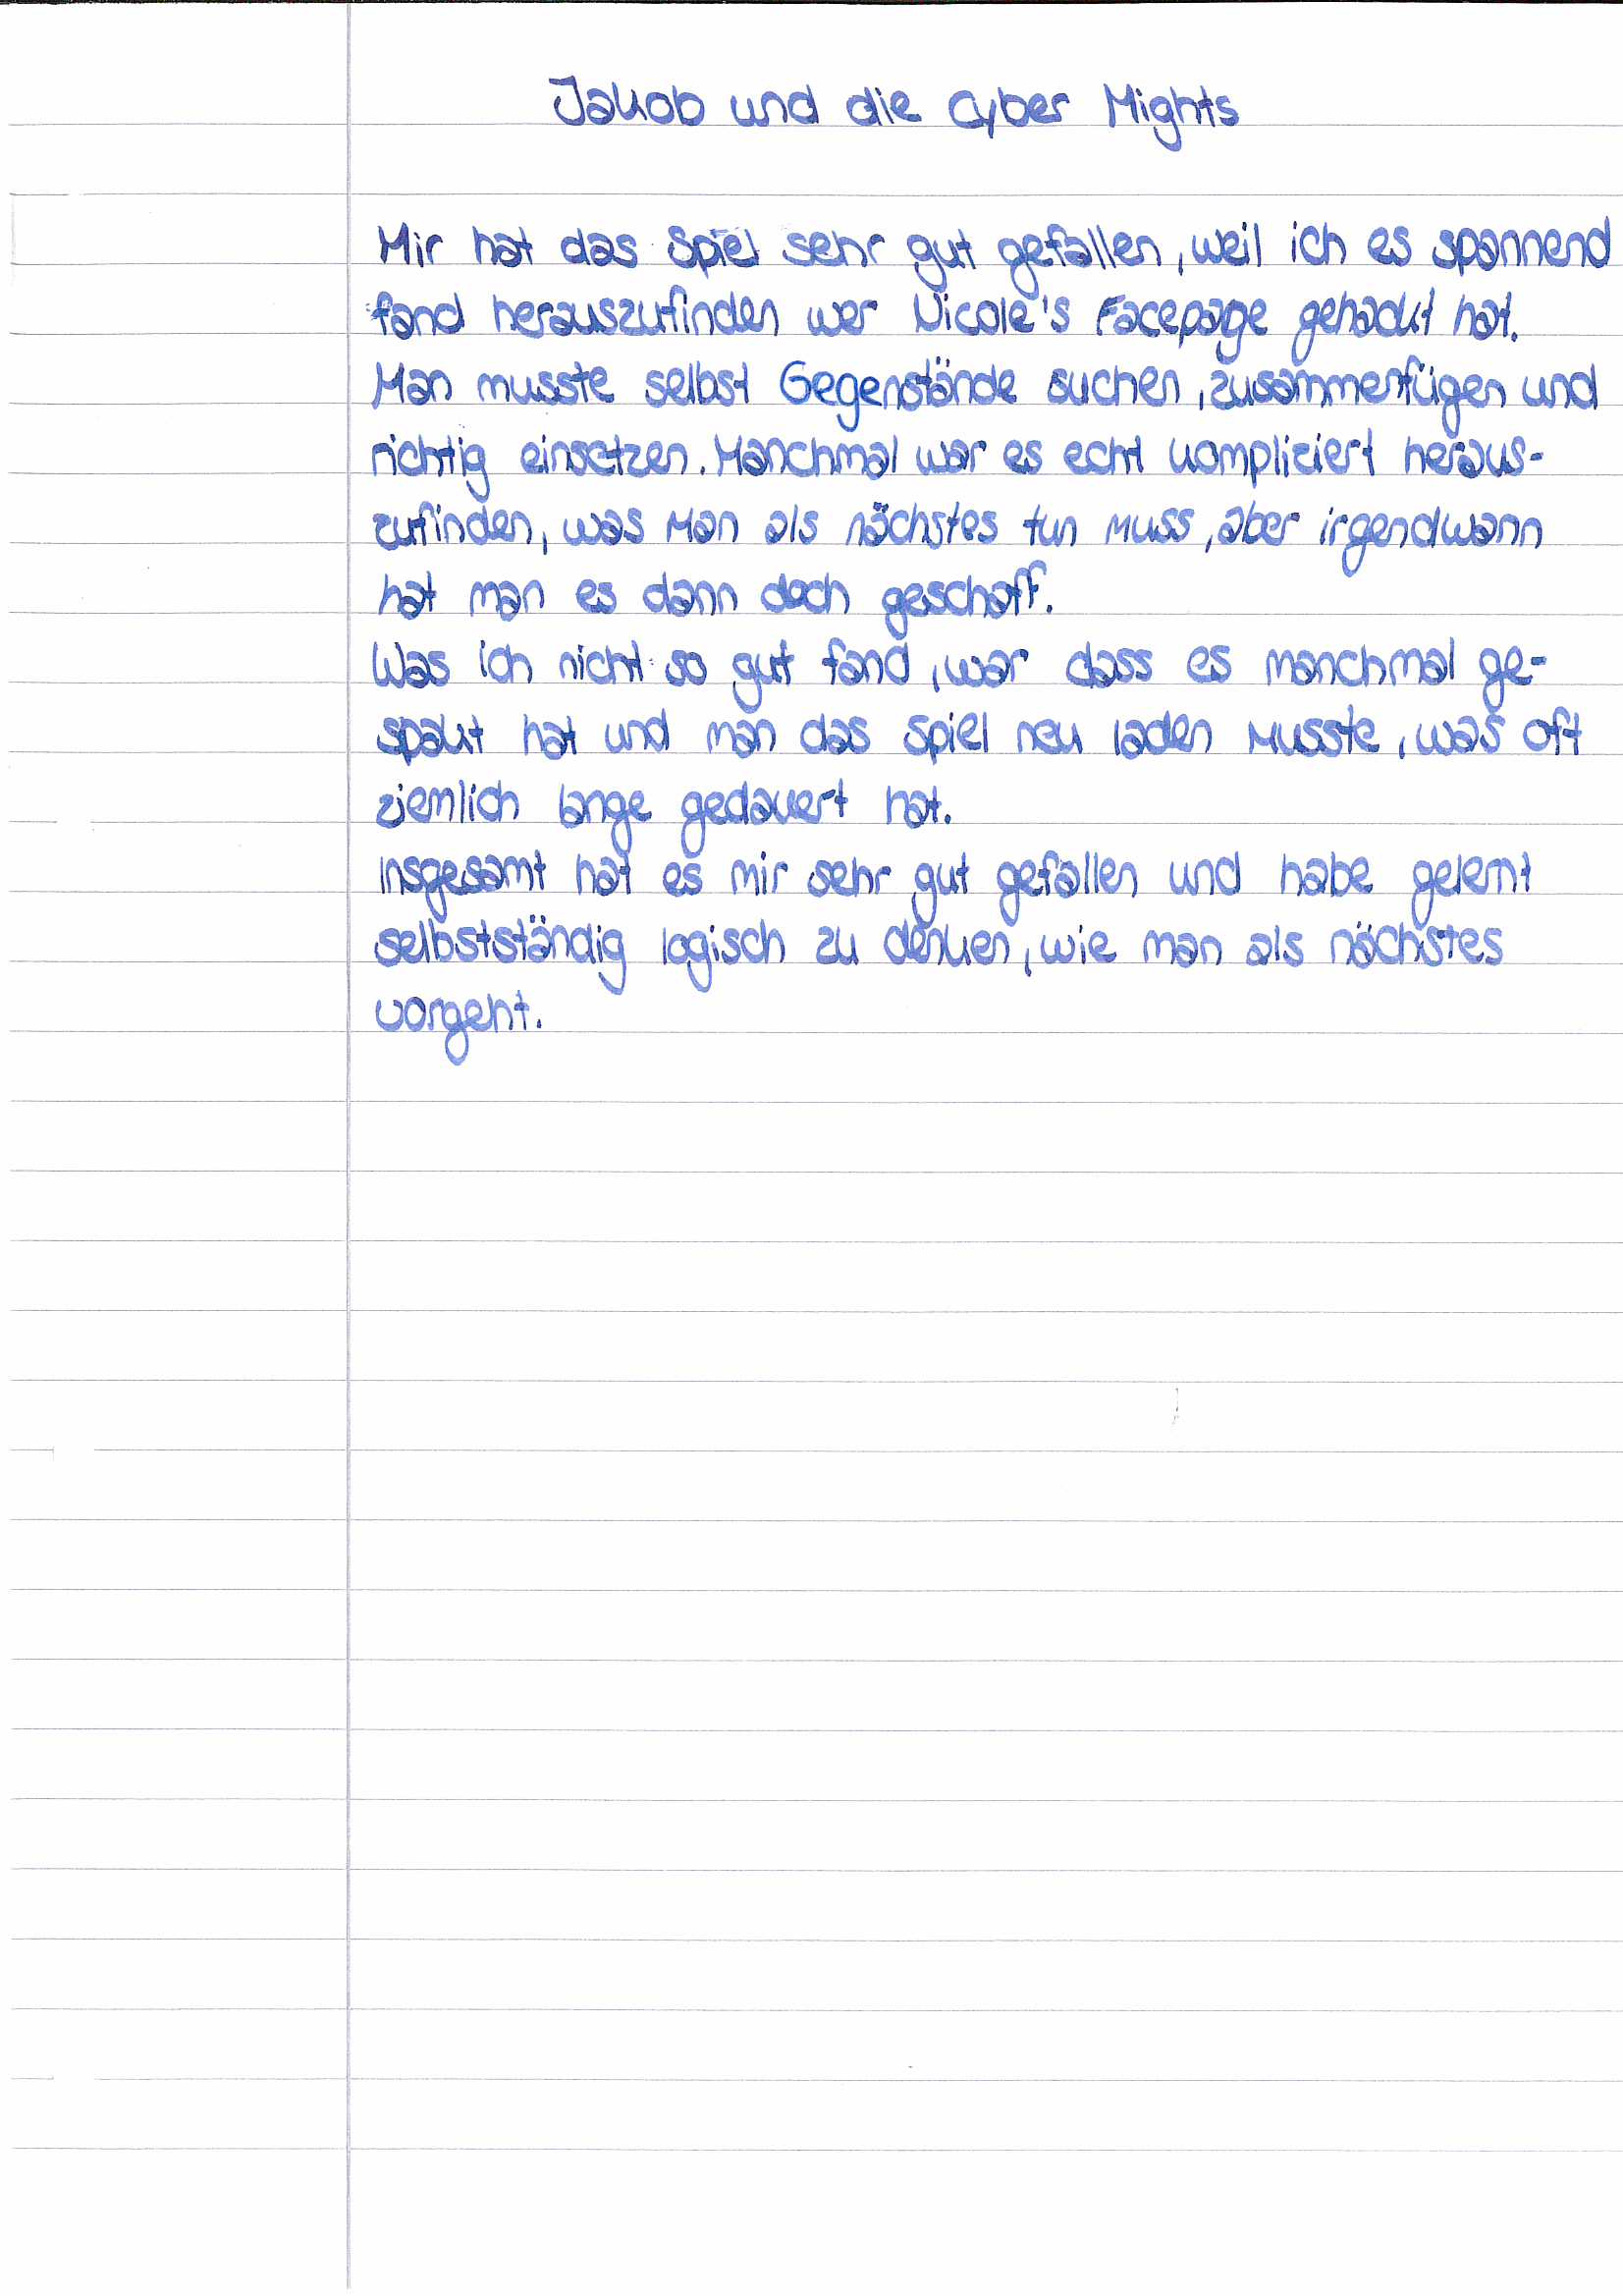 Jakob und die Cyber Mights
Mir hat das Spiel sehr gut gefallen, weil ich es spannend
fand herauszufinden wer Nicole's Facepage gehackt hat.
Man musste selbst Gegenstände suchen, zusammenfügen und
richtig einsetzen. Manchmal war es echt kompliziert heraus-
zufinden, was man als nächstes tun muss, aber irgendwann
hat man es dann doch geschaff.
Was ich nicht so gut fand, war dass es manchmal ge-
spakt hat und man das Spiel neu laden musste, was oft
ziemlich lange gedauert hat.
Insgesamt hat es mir sehr gut gefallen und habe gelernt
selbstständig logisch zu denken, wie man als nächstes
vorgeht.